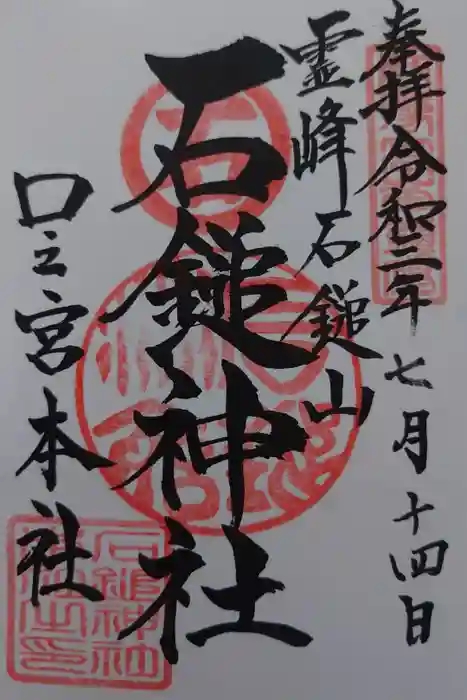 奉拝令和三年七月十四日
霊峰石鎚山
石鎚神社
口之宮本社